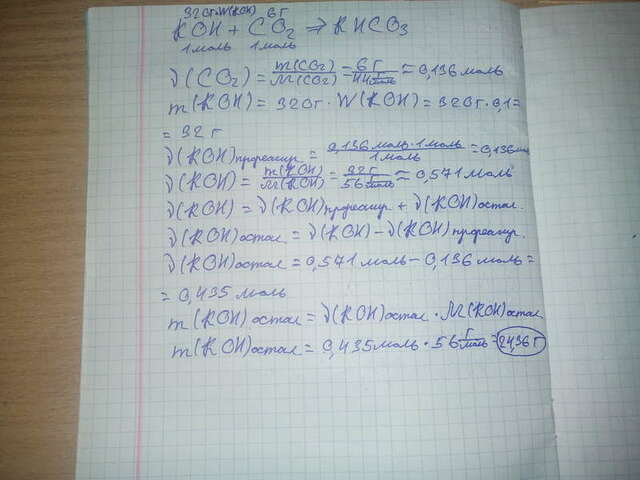 320г·W(KOH) 6г
KOH + CO₂ ⇒ KHCO₃
1моль 1моль
ν(CO₂) = m(CO₂)/M(CO₂) = 6г/44 г/моль ≈ 0,136 моль
m(KOH) = 320г · W(KOH) = 320г · 0,1 =
= 32 г
ν(KOH)прореагир = 0,136 моль · 1 моль/1 моль = 0,136 мол
ν(KOH) = m(KOH)/M(KOH) = 32г/56 г/моль ≈ 0,571 моль
ν(KOH) = ν(KOH)прореагир + ν(KOH)остал.
ν(KOH)остал = ν(KOH) – ν(KOH)прореагир.
ν(KOH)остал = 0,571 моль – 0,136 моль =
= 0,435 моль
m(KOH)остал = ν(KOH)остал · M(KOH)остал
m(KOH)остал = 0,435 моль · 56 г/моль = 24,36 г